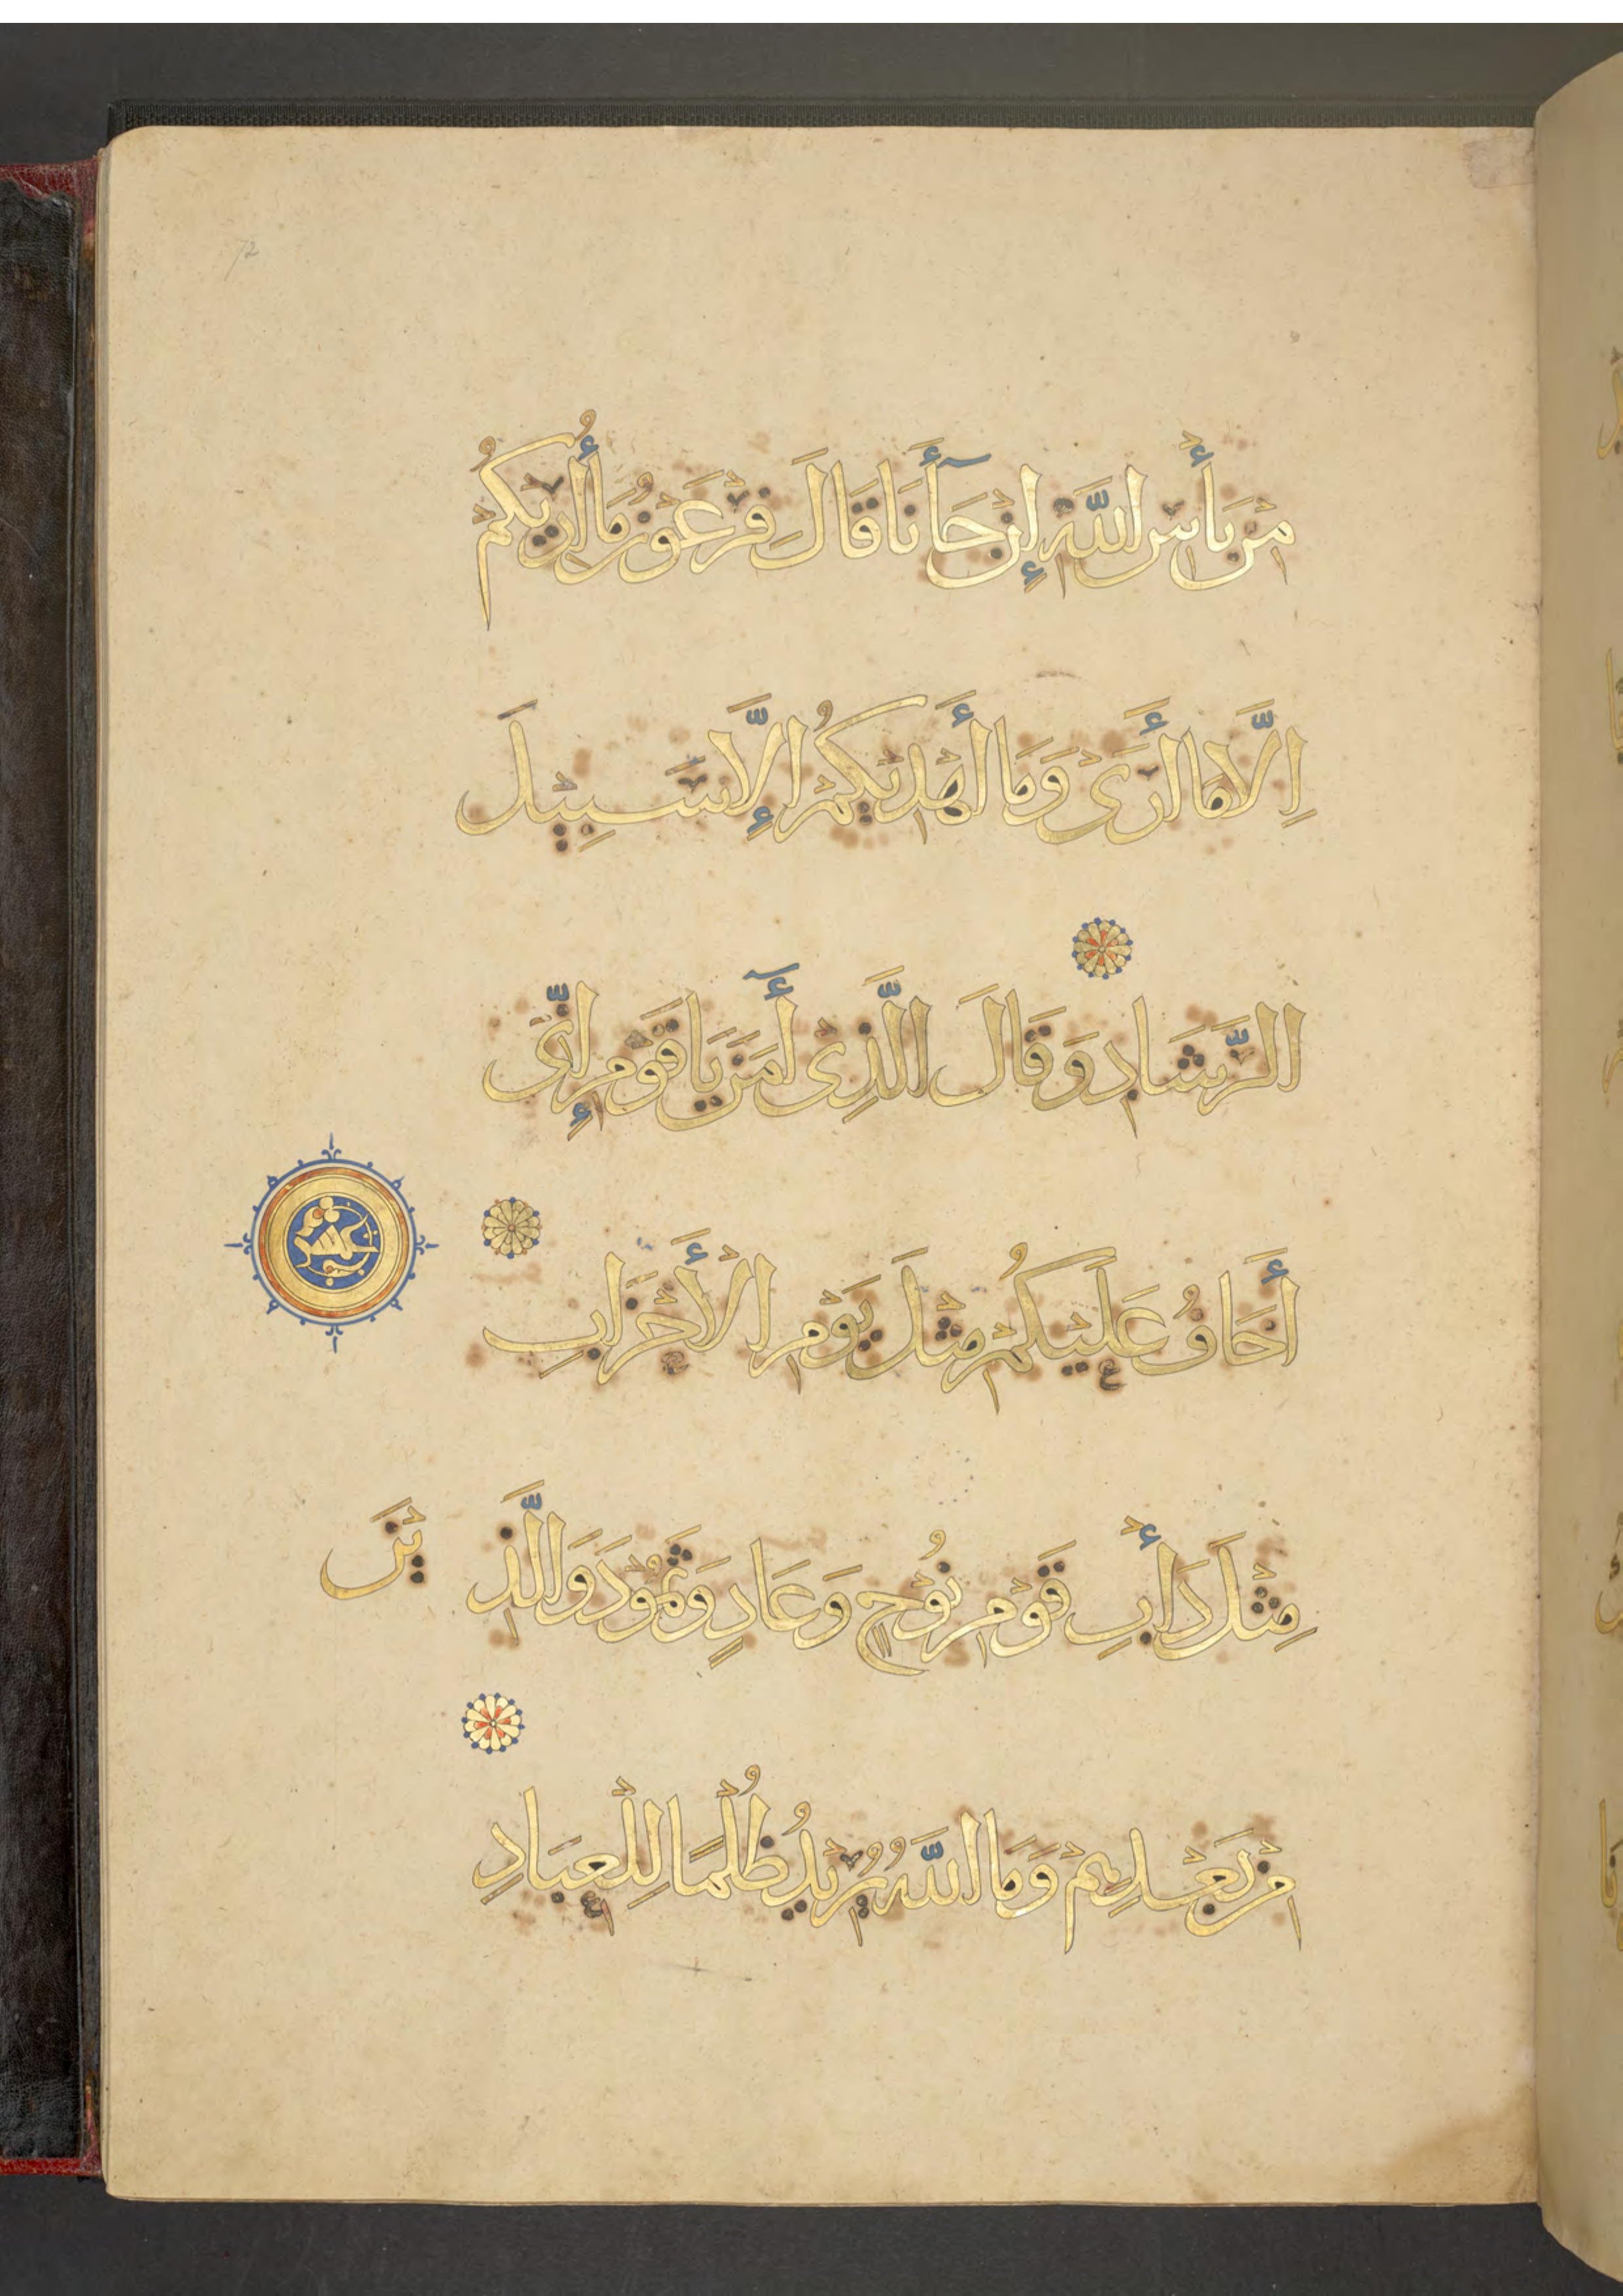 72
مِنْ بَأْسِ اللَّهِ إِنْ جَآأَنَا قَالَ فِرْعَوْنُ مَا أُرِيْكُمْ
اِلَّا مَا أَرَىْ وَمَا أَهْدِيْكُمْ اِلَّا سَبِيْلَ
الرَّشَادِ وَقَالَ الَّذِىْ أٓمَنَ يَا قَوْمِ إِنِّىْ
أَخَافُ عَلَيْكُمْ مِثْلَ يَوْمِ الْأَحْزَابِ
مِثْلَ دَأْبِ قَوْمِ نُوْحٍ وَعَادٍ وَثَمُوْدَ وَالَّذِيْنَ
مِنْ بَعْدِهِمْ وَمَا اللَّهُ يُرِيْدُ ظُلْمًا لِلْعِبَادِ